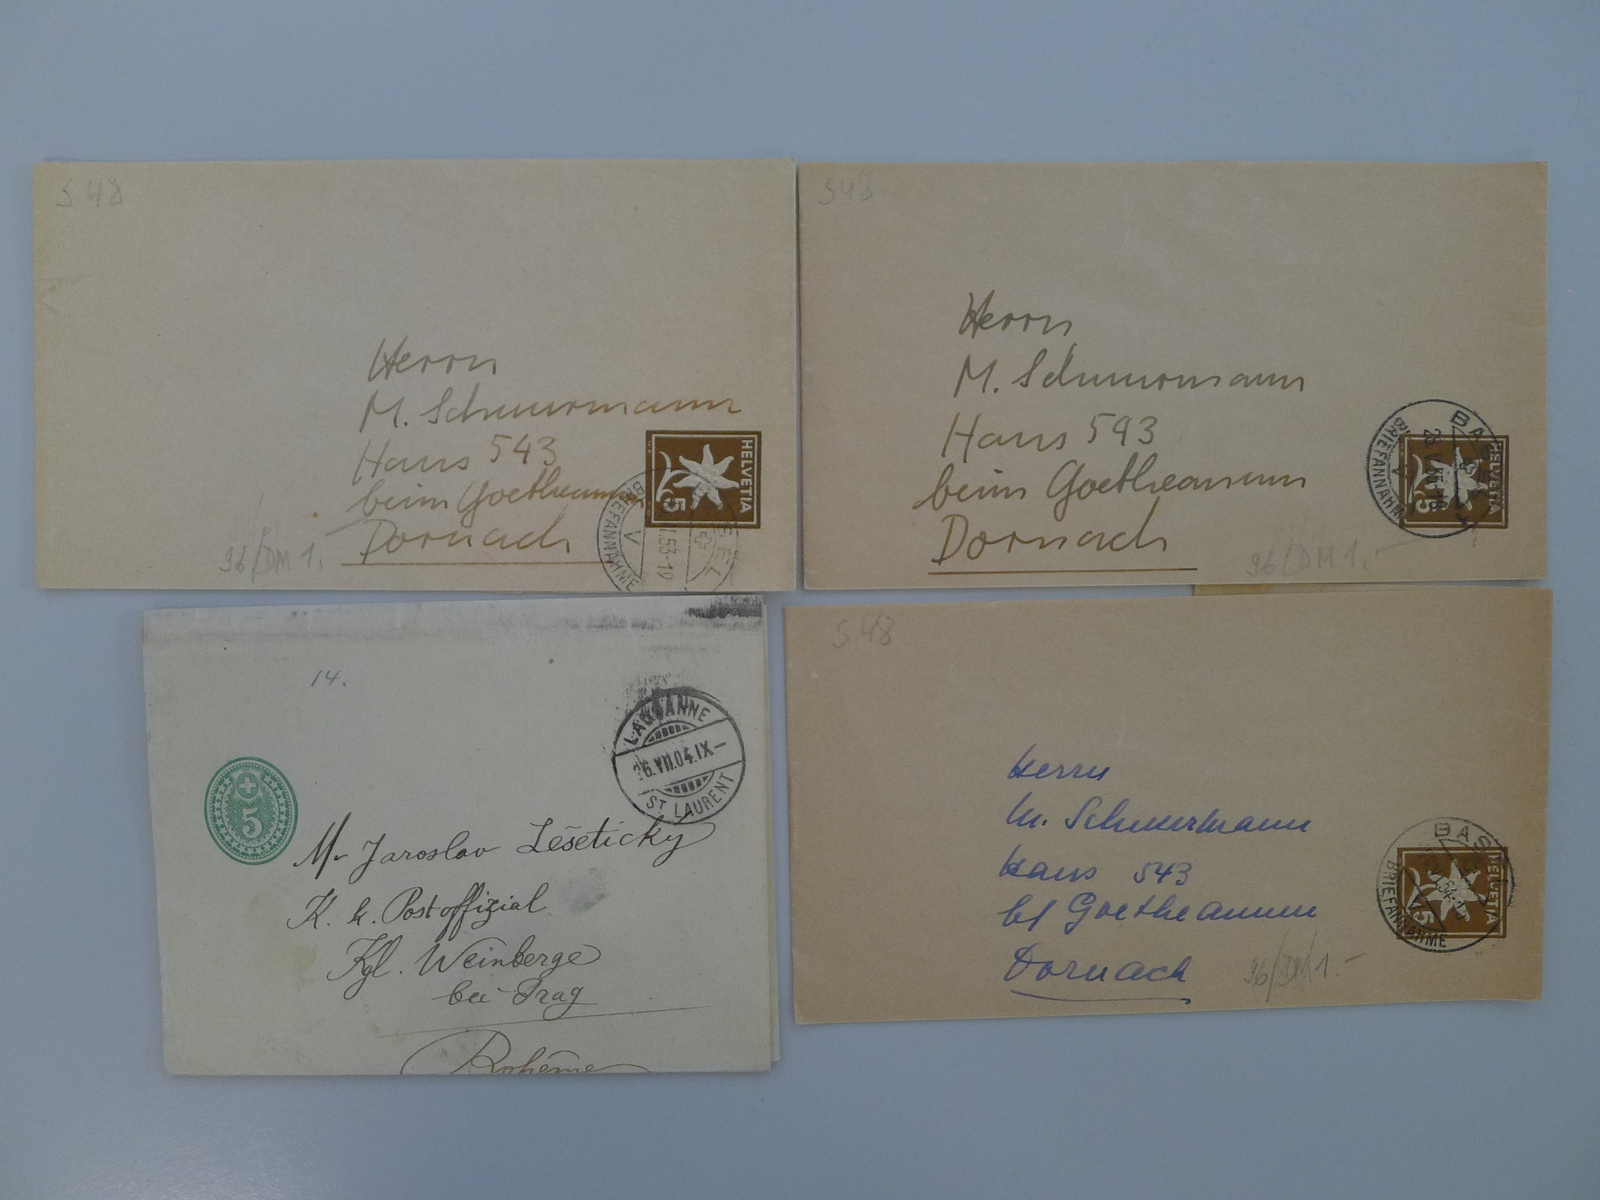 S 48
Herrn
M. Schuurmann
Haus 543
beim Goetheanum
Dornach
96/DM 1.
HELVETIA
5
BRIEFANNAHME
V
.53-10
SEL
S 48
Herrn
M. Schuurmann
Haus 593
beim Goetheanum
Dornach
96/DM 1.-
HELVETIA
5
BRIEFANNAHME
V
14.
LAUSANNE
26.VII.04.IX-
ST LAURENT
5
Mr Jaroslav Lešeticky
K. k. Postoffizial
Kgl. Weinberge
bei Prag
Bohême
S 48
Herrn
M. Schuurmann
Haus 543
bf Goetheanum
Dornach
96/DM 1.-
BASEL
HELVETIA
5
BRIEFANNAHME
V